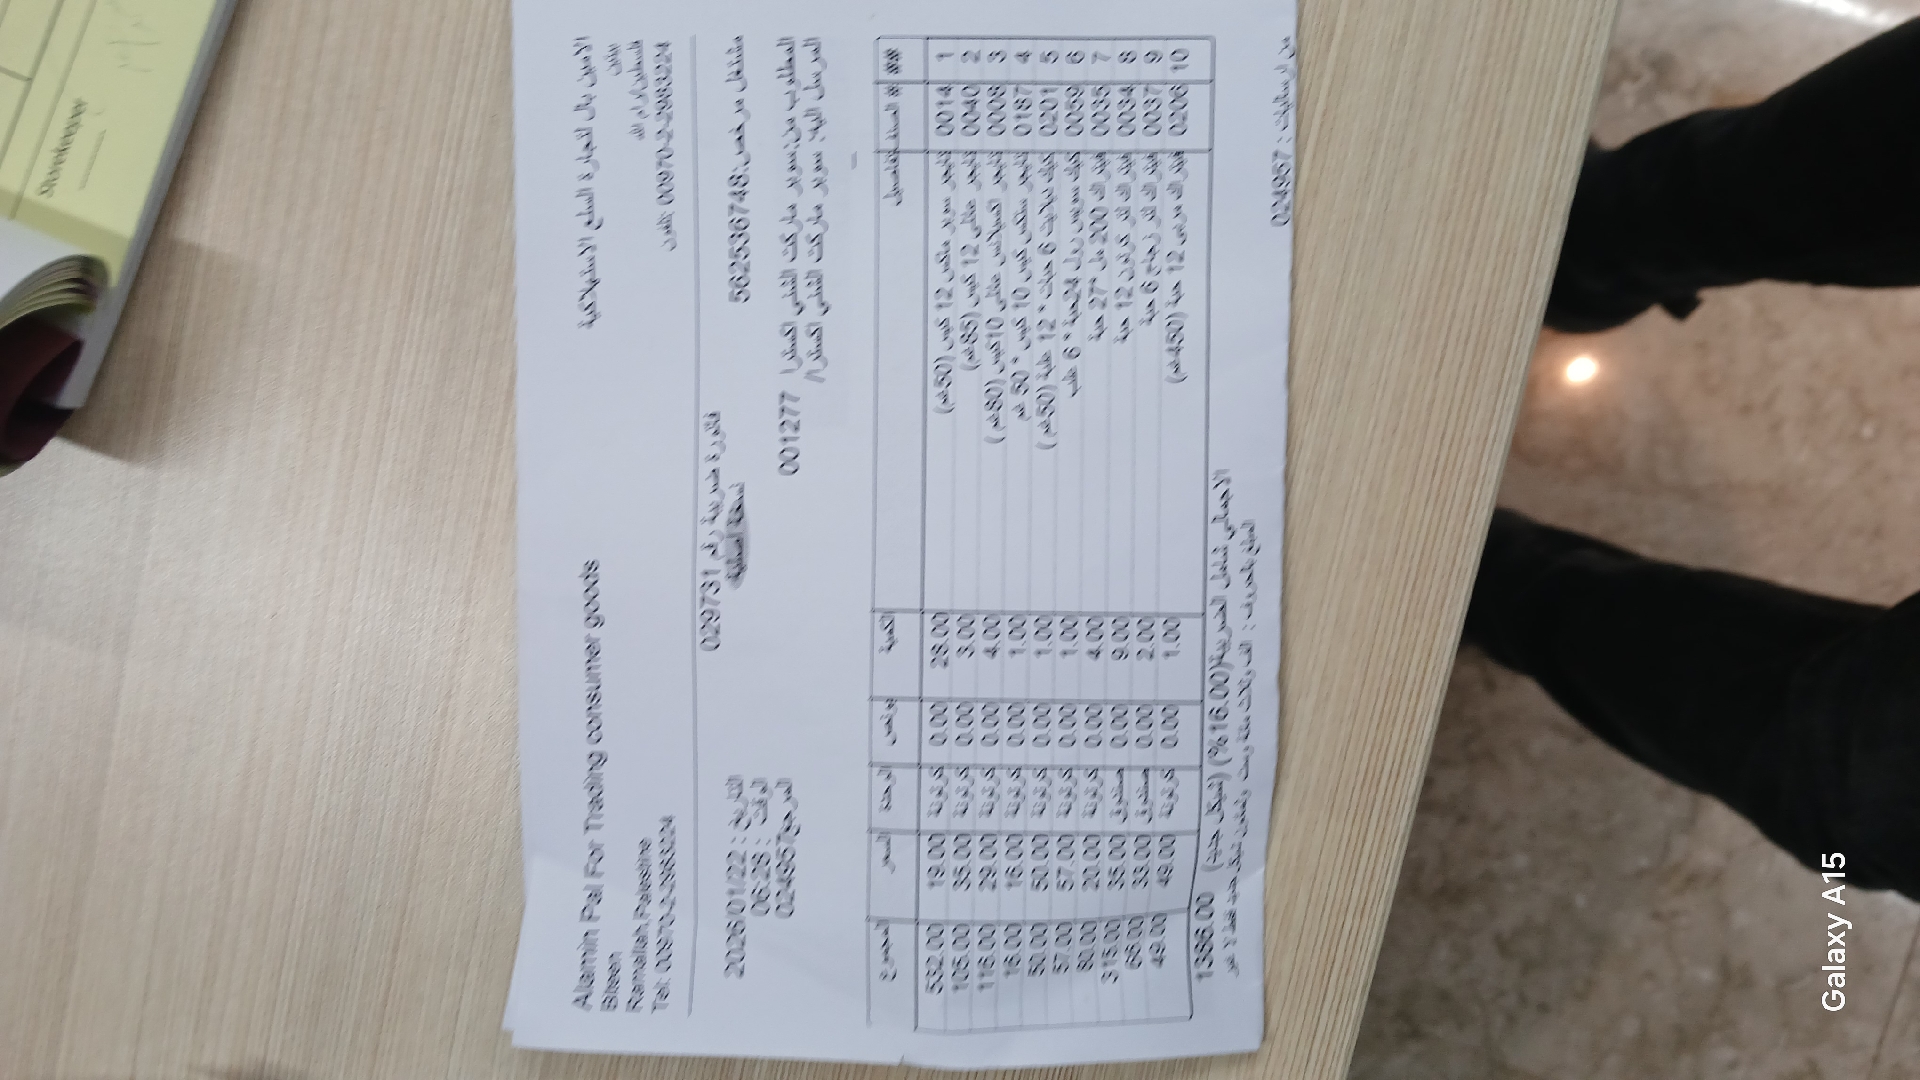 Alamin Pal For Trading consumer goods
الامين بال لتجارة السلع الاستهلاكية
Biteen
بيتين
Ramallah,Palestine
فلسطين/رام الله
Tel: 00970-2-2983224
تلفون: 00970-2-2983224
فاتورة ضريبية رقم 029731
نسخة اصلية
مشتغل مرخص: 562536748
التاريخ: 2026/01/22
الوقت: 06:28
المرجع 024957
المطلوب من: سوبر ماركت القلي اكسترا 001277
المرسل اليه: سوبر ماركت القلي اكسترا/
## # الصنف التفاصيل الكمية بونص الوحدة السعر المجموع
1 0014 تايجر سوبر مكس 12 كيس (50غم) 28.00 0.00 كرتونة 19.00 532.00
2 0040 تايجر عائلي 12 كيس (85غم) 3.00 0.00 كرتونة 35.00 105.00
3 0008 تايجر اكسبلانس عائلي 10كيس (80غم) 4.00 0.00 كرتونة 29.00 116.00
4 0187 تايجر ميكس كيس 10 كيس * 50 غم 1.00 0.00 كرتونة 16.00 16.00
5 0201 كيك 6 حبات * 12 علبة (50غم) 1.00 0.00 كرتونة 50.00 50.00
6 0059 كيك سويس رول 24حبة * 6 علب 1.00 0.00 كرتونة 57.00 57.00
7 0035 200 مل *27 حبة 4.00 0.00 كرتونة 20.00 80.00
8 0034 لتر كرتون 12 حبة 9.00 0.00 صندوق 35.00 315.00
9 0037 لتر زجاج 6 حبة 2.00 0.00 صندوق 33.00 66.00
10 0206 مربى 12 حبة (450غم) 1.00 0.00 كرتونة 49.00 49.00
الاجمالي شامل الضريبة(16.00%) (شيكل جديد) 1386.00
المبلغ بالحروف : الف وثلاث مئة وست وثمانون شيكل جديد فقط لا غير
من ارساليات : 024957
Storekeeper
Galaxy A15